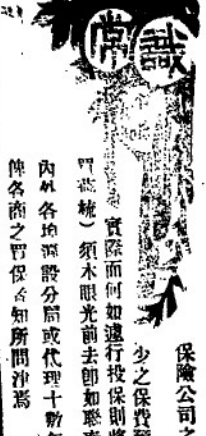 常識
保險公司之
少之保費
實際而何如遽行投保則將
須木眼光前去卽如聯
內外各地灑設分局或代理十數年
俾各商之買保者知所問津焉